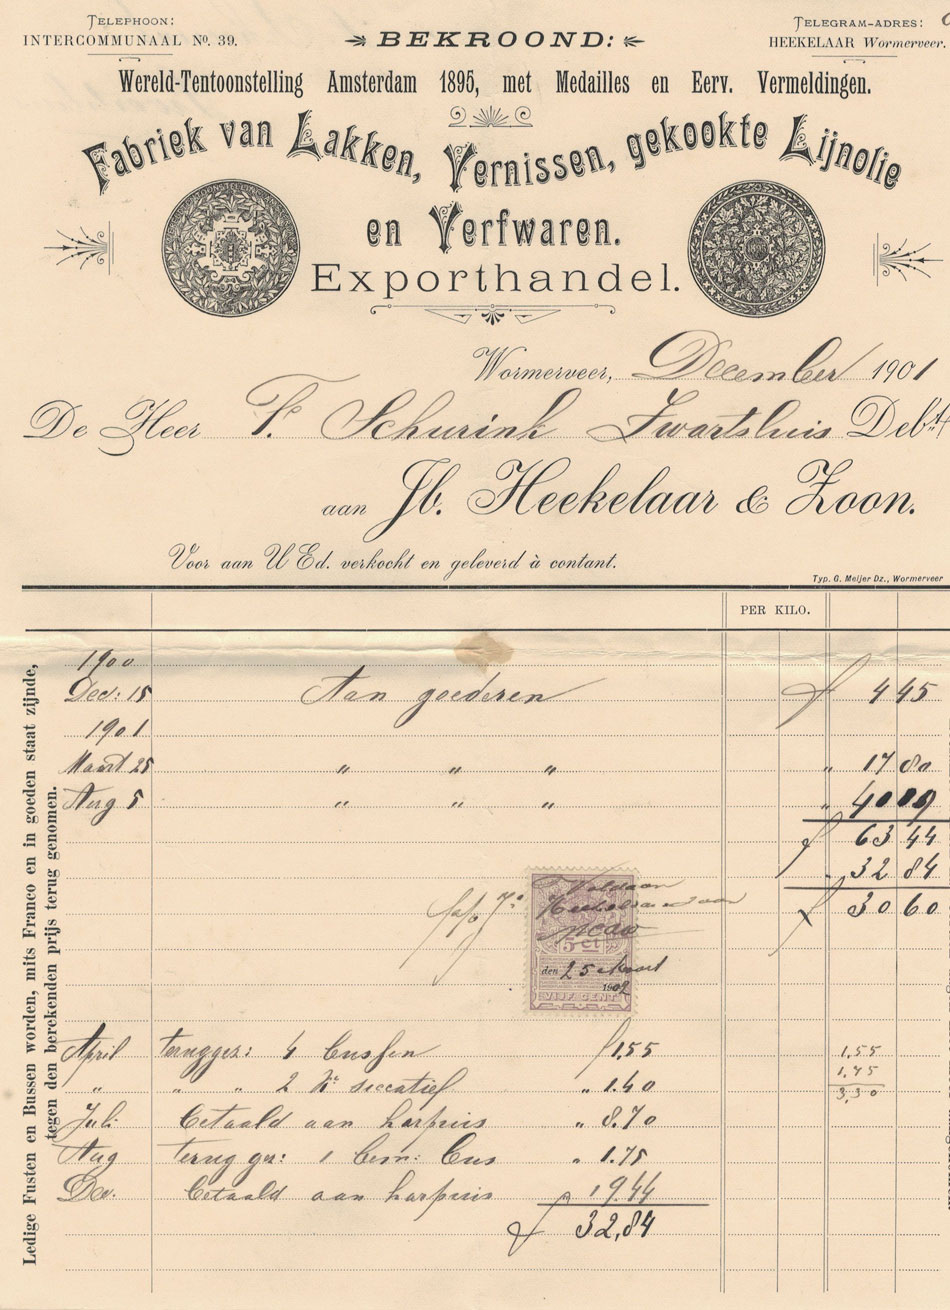 TELEPHOON:
INTERCOMMUNAAL No. 39.
BEKROOND:
TELEGRAM-ADRES:
HEEKELAAR Wormerveer.
Wereld-Tentoonstelling Amsterdam 1895, met Medailles en Eerv. Vermeldingen.
Fabriek van Lakken, Vernissen, gekookte Lijnolie
en Verfwaren.
Exporthandel.
Wormerveer, December 1901
De Heer P. Schurink Zwartsluis Debt.
aan Jb. Heekelaar & Zoon.
Voor aan UEd. verkocht en geleverd à contant.
Typ. G. Meijer Dz., Wormerveer
PER KILO.
Ledige Fusten en Bussen worden, mits Franco en in goeden staat zijnde,
tegen den berekenden prijs terug genomen.
1900
Dec: 15 Aan goederen f 4 45
1901
Maart 25 " " " " 17 80
Aug 5 " " " " 40 19
f 63 44
" 32 84
f 30 60
Voldaan
5 ct
den 25 Maart
1902
VIJF CENT
April terugger: 4 bussen f 1.55
" " " 2 Kr siccatief " 1.40
Juli betaald aan harpuis " 8.70
Aug terug ger: 1 bem: bus " 1.75
Dec. betaald aan harpuis " 19.44
f 32,84
1,55
1,45
3,30